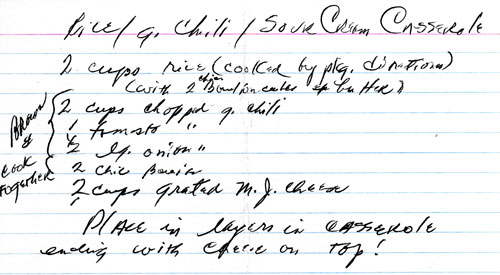 Rice/g. Chili/Sour Cream Casserole
2 cups rice (cooked by pkg. directions)
(with 2 chic Bouillon cubes & butter)
Brown & cook together
2 cups chopped g. chili
1 tomato "
1/2 lg. onion "
2 chic
2 cups grated M. J. cheese
Place in layers in casserole
ending with cheese on top!